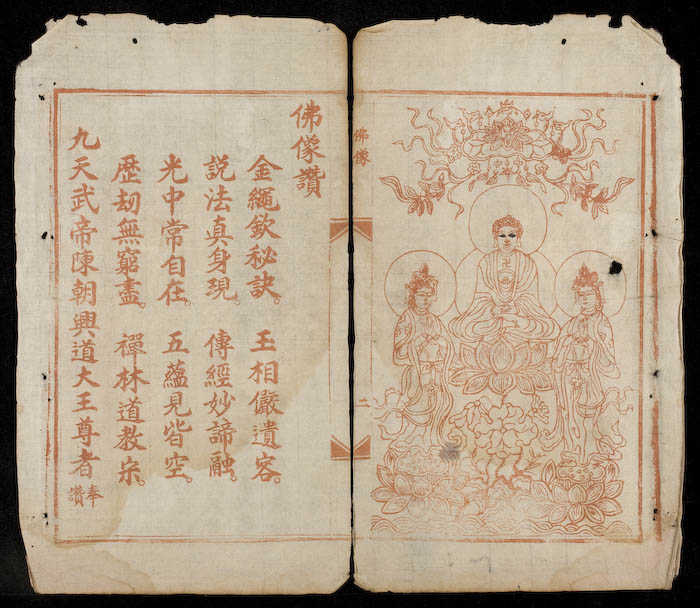 佛像
二
佛像讚
金繩欽秘訣。玉相儼遺容。
説法真身現。傳經妙諦融。
光中常自在。五蘊見皆空。
歴刼無窮盡。禪林道教宗。
九天武帝陳朝興道大王尊者奉讚